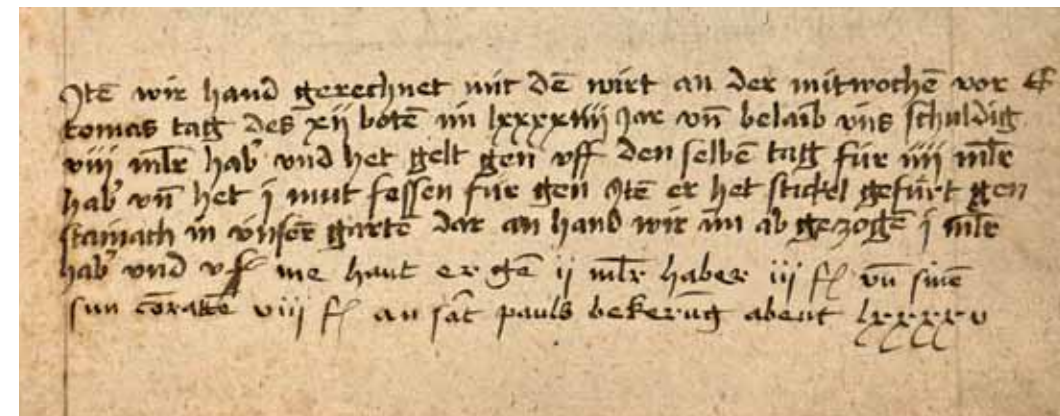 Itē wir hand gerechnet mit dē wirt an der mitwochē vor S
tomas tag des xij botē im lxxxxiiij Jar vn̄ belaib vns schuldig
viii ml̄r hab' vnd het gelt gen vff den selbē tag für iiij ml̄r
hab' vn̄ het j mut fessen für gen Itē er het stickel gefürt gen
stainach in vnser gartē dar an hand wir im ab gezogē j ml̄r
hab' vnd vff me haut er gē ii ml̄r haber iii ſ vn̄ sinē
sun cōratē viii ſ an sāt pauls bekerūg abent lxxxxv